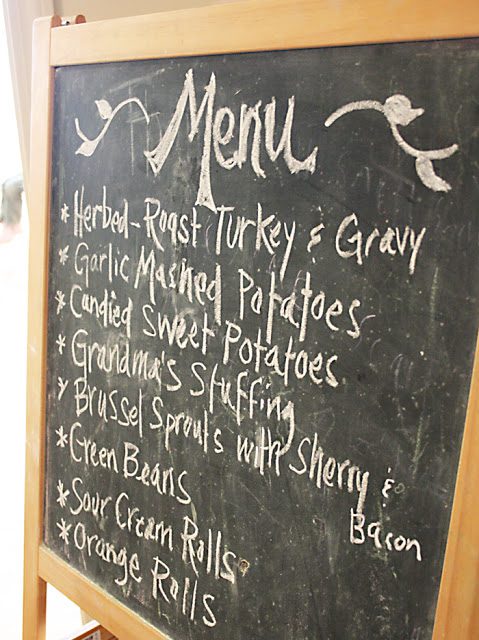 Menu
* Herbed-Roast Turkey & Gravy
* Garlic Mashed Potatoes
* Candied Sweet Potatoes
* Grandma's Stuffing
* Brussel Sprouts with Sherry &
Bacon
* Green Beans
* Sour Cream Rolls
* Orange Rolls